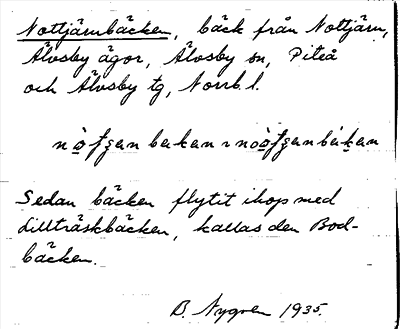 Nottjärnbäcken, bäck från Nottjärn,
Älvsby ägor, Älvsby sn, Piteå
och Älvsby tg, Norrb. l.
Sedan bäcken flytit ihop med
Lillträskbäcken, kallas den Bod-
bäcken.
B. Nygren 1935.